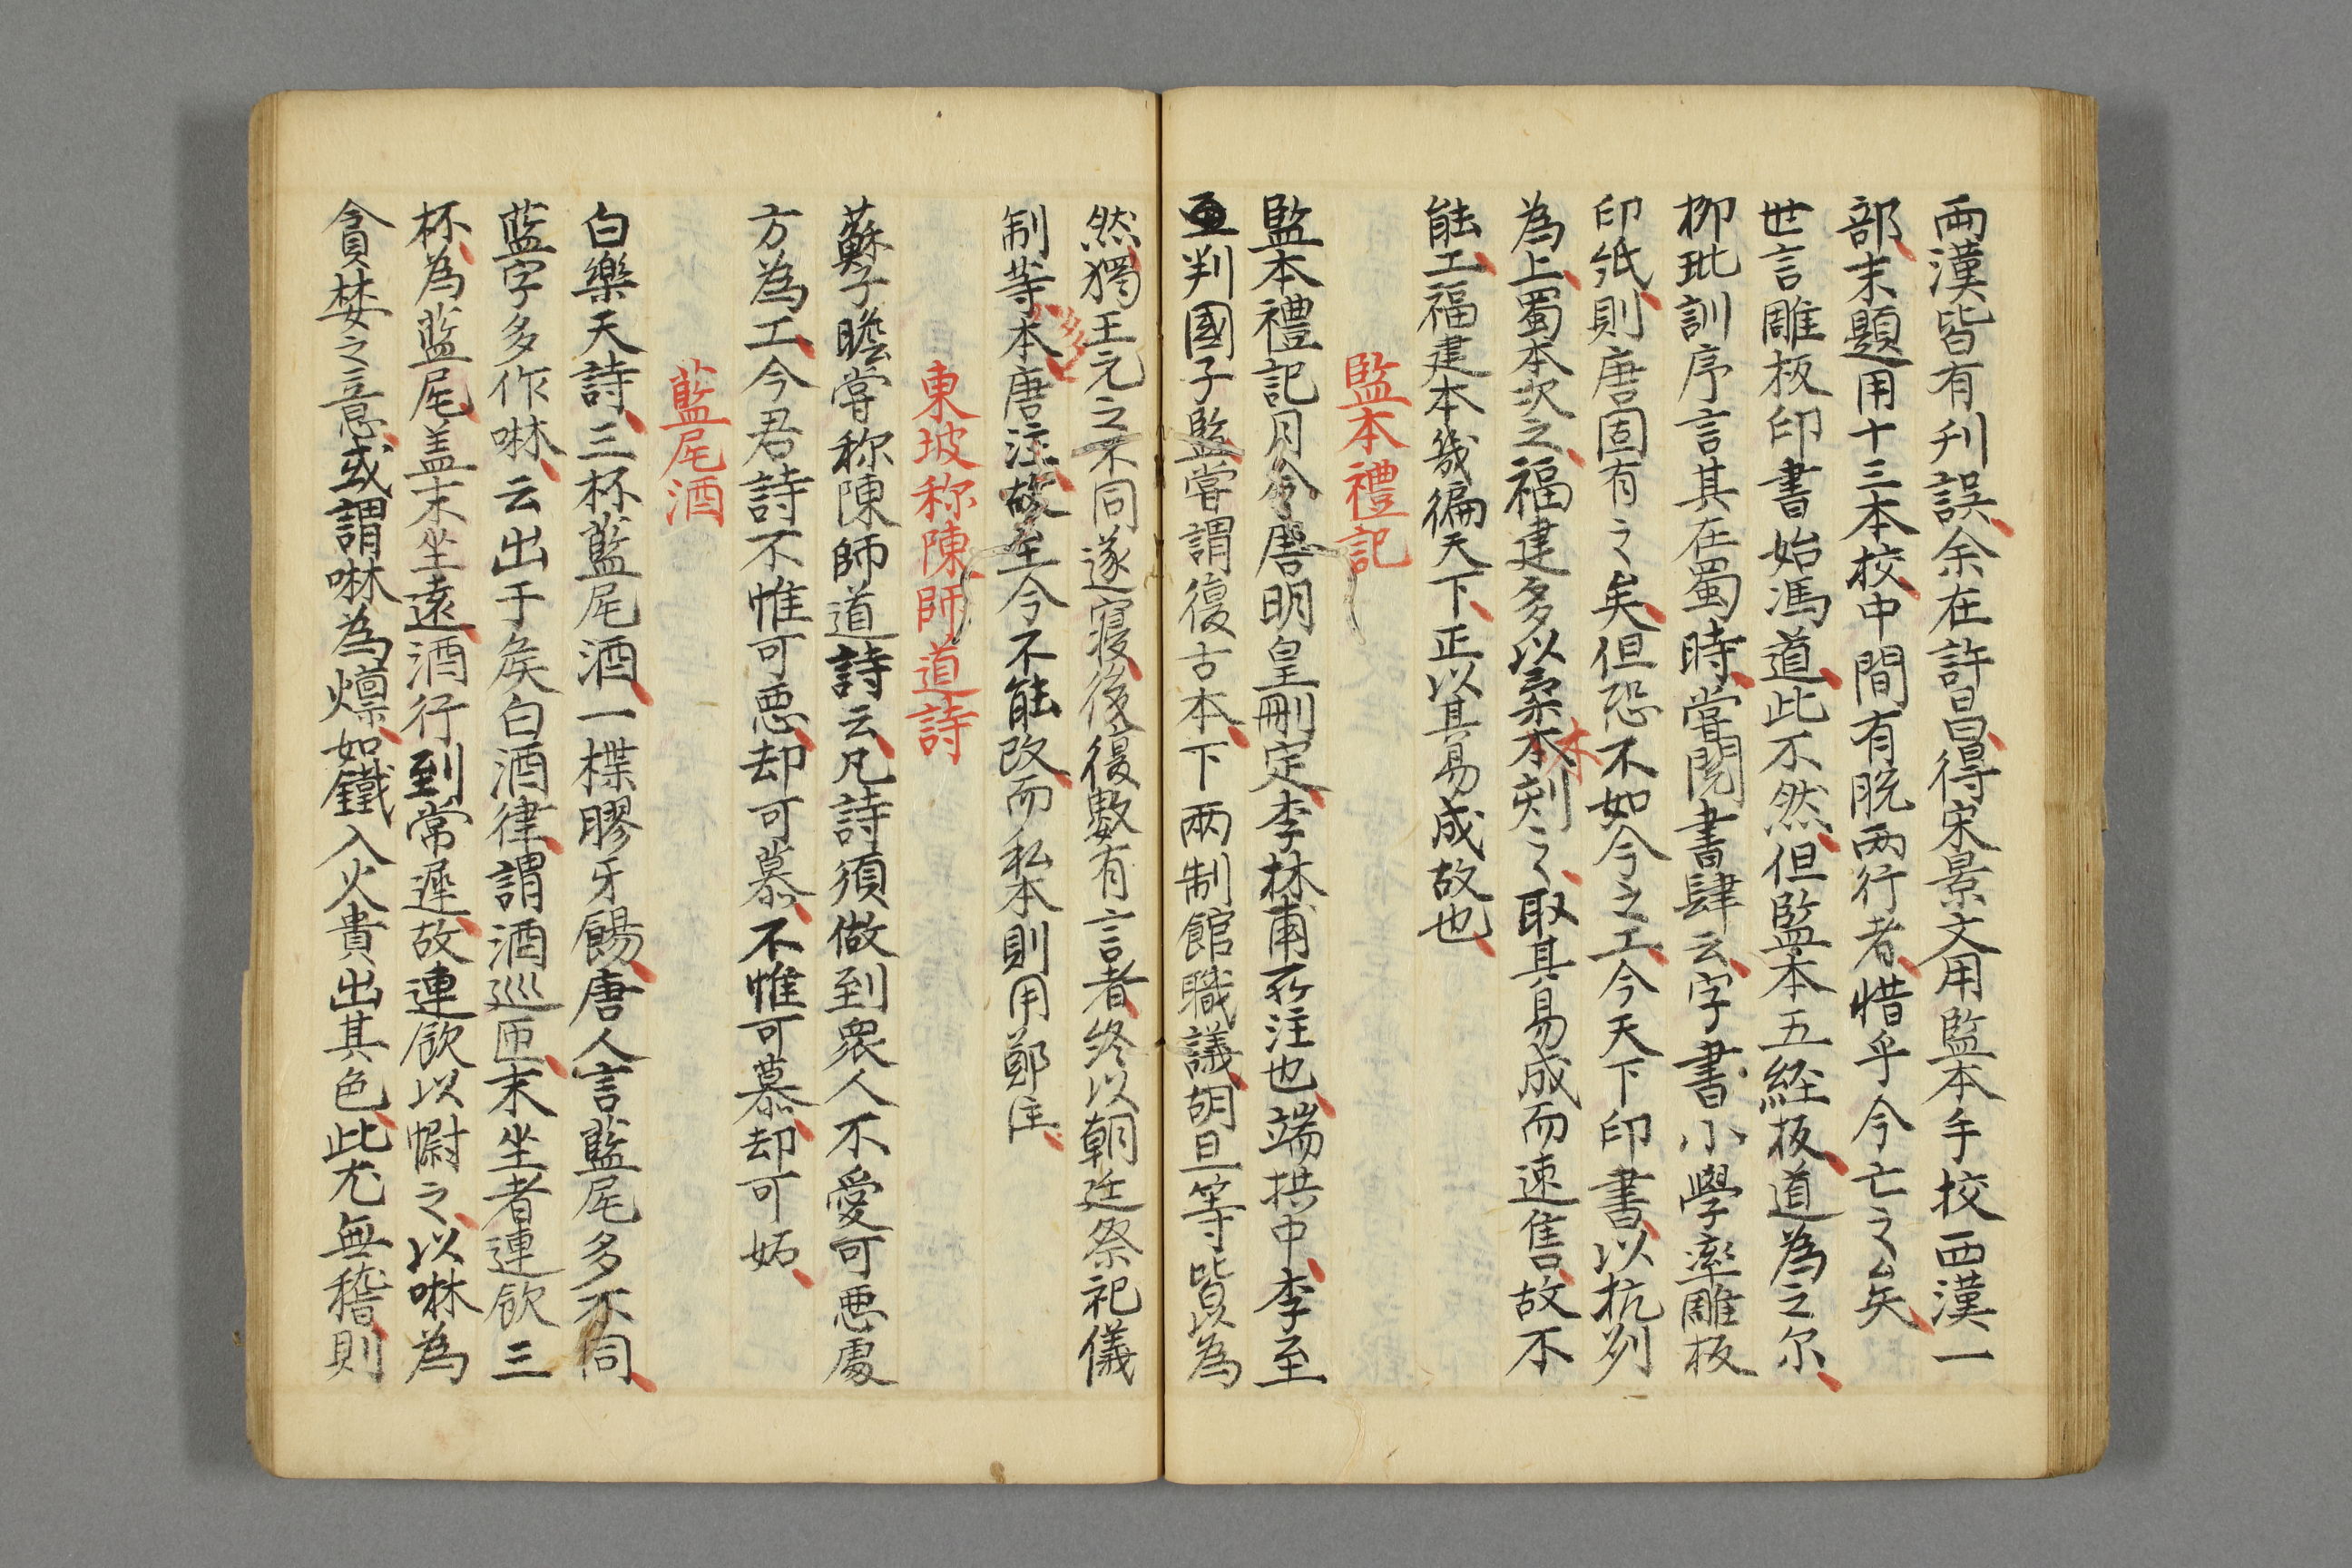 兩漢皆有刋誤余在許昌得宋景文用監本手挍西漢一
部末題用十三本挍中間有脫兩行者惜乎今亡之矣
世言雕板印書始馮道此不然但監本五経板道為之尔
栁玭訓序言其在蜀時嘗閱書肆云字書小學率雕板
印紙則唐固有之矣但恐不如今之工今天下印書以杭列
為上蜀本次之福建多以柔本刻之取其易成而速售故不
木
能工福建本幾徧天下正以其易成故也
監本禮記
監本禮記月令唐明皇刪定李林甫所注也端拱中李至
判國子監嘗謂復古本下兩制館職議胡旦等皆以為
然獨王元之不同遂寢後復數有言者終以朝廷祭祀儀
制等本唐注故至今不能改而私本則用鄭注
多
東坡称陳師道詩
蘇子瞻嘗称陳師道詩云凡詩須做到衆人不愛可悪處
方為工今君詩不惟可悪却可慕不惟可慕却可妬
藍尾酒
白樂天詩三杯藍尾酒一楪膠牙餳唐人言藍尾多不同
藍字多作啉云出于矦白酒律謂酒巡匝末坐者連飲三
杯為藍尾盖末坐遠酒行到常遲故連飲以慰之以啉為
貪婪之意或謂啉為燣如鐵入火貴出其色此尤無稽則